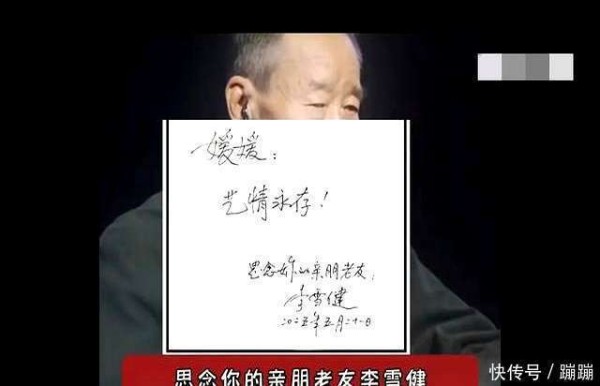 媛媛：
艺情永存！
思念你的亲朋老友，
李雪健
二〇二五年五月二十一日
思念你的亲朋老友李雪健
快传号 / 蹦蹦